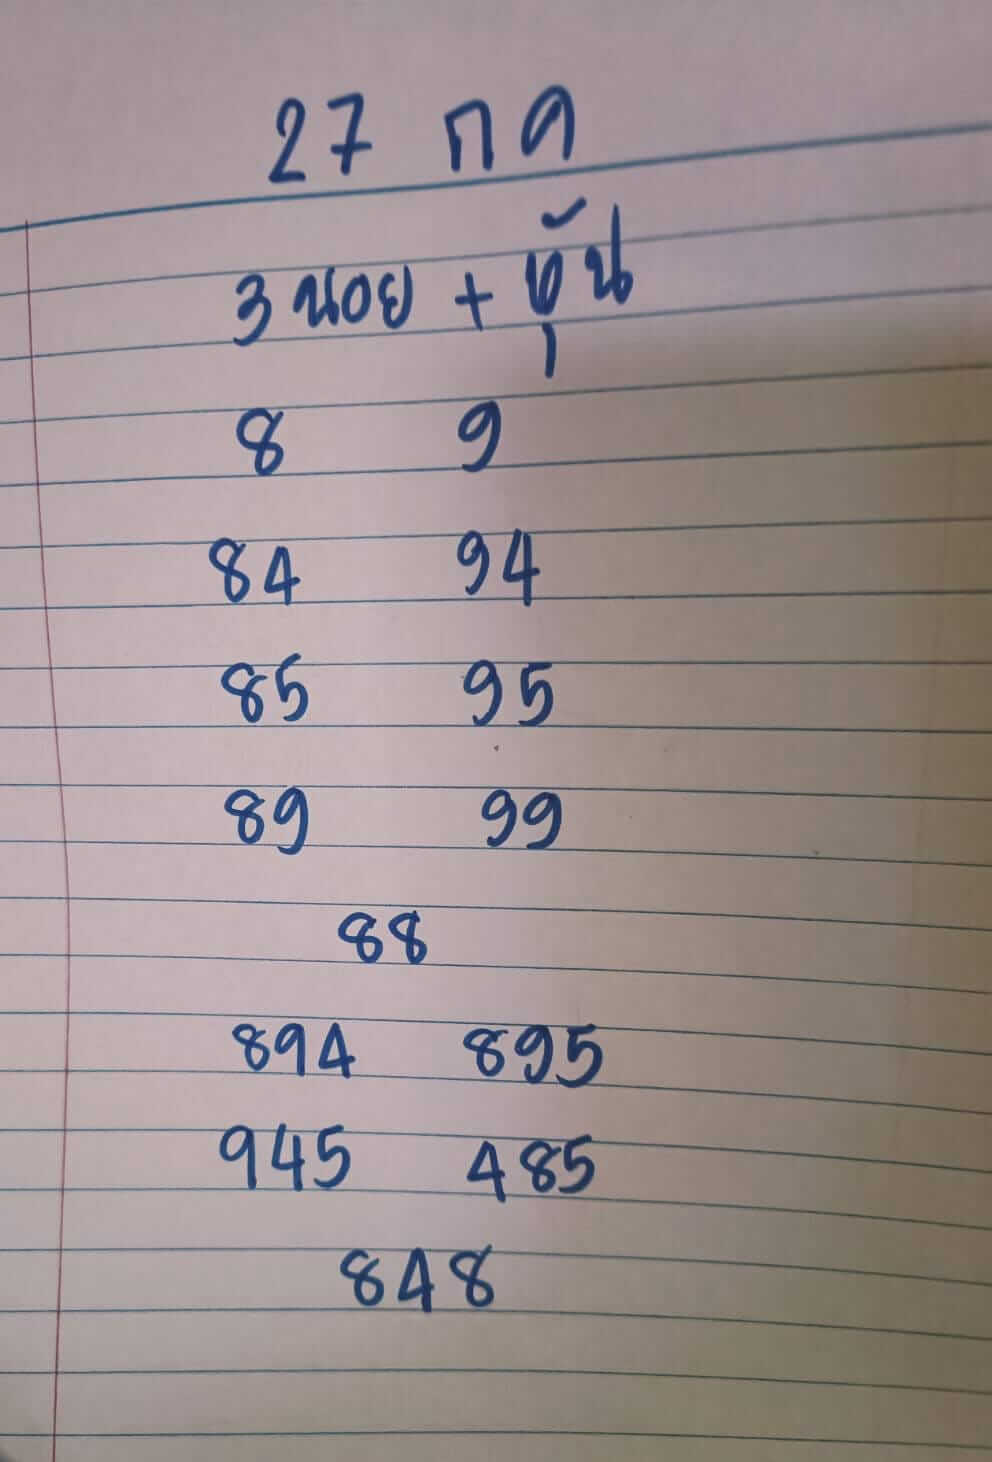 27 กค
3 นอย + หุ้น
8 9
84 94
85 95
89 99
88
894 895
945 485
848